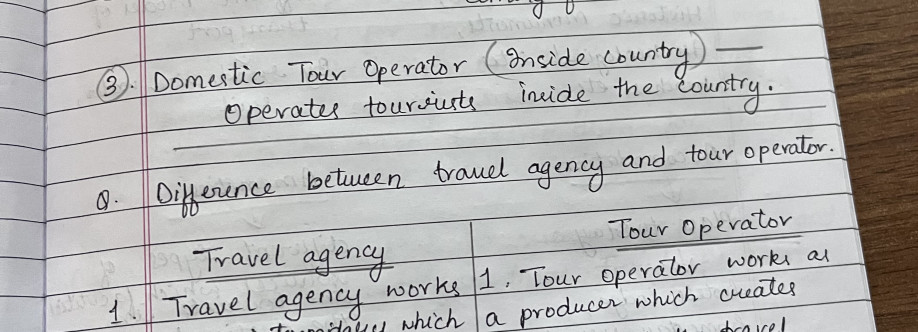 ③. Domestic Tour Operator (Inside country) —
Operates tourists inside the country.
Q. Difference between travel agency and tour operator.
Travel agency
Tour Operator
1. Travel agency works
which
1. Tour operator works as
a producer which creates
travel